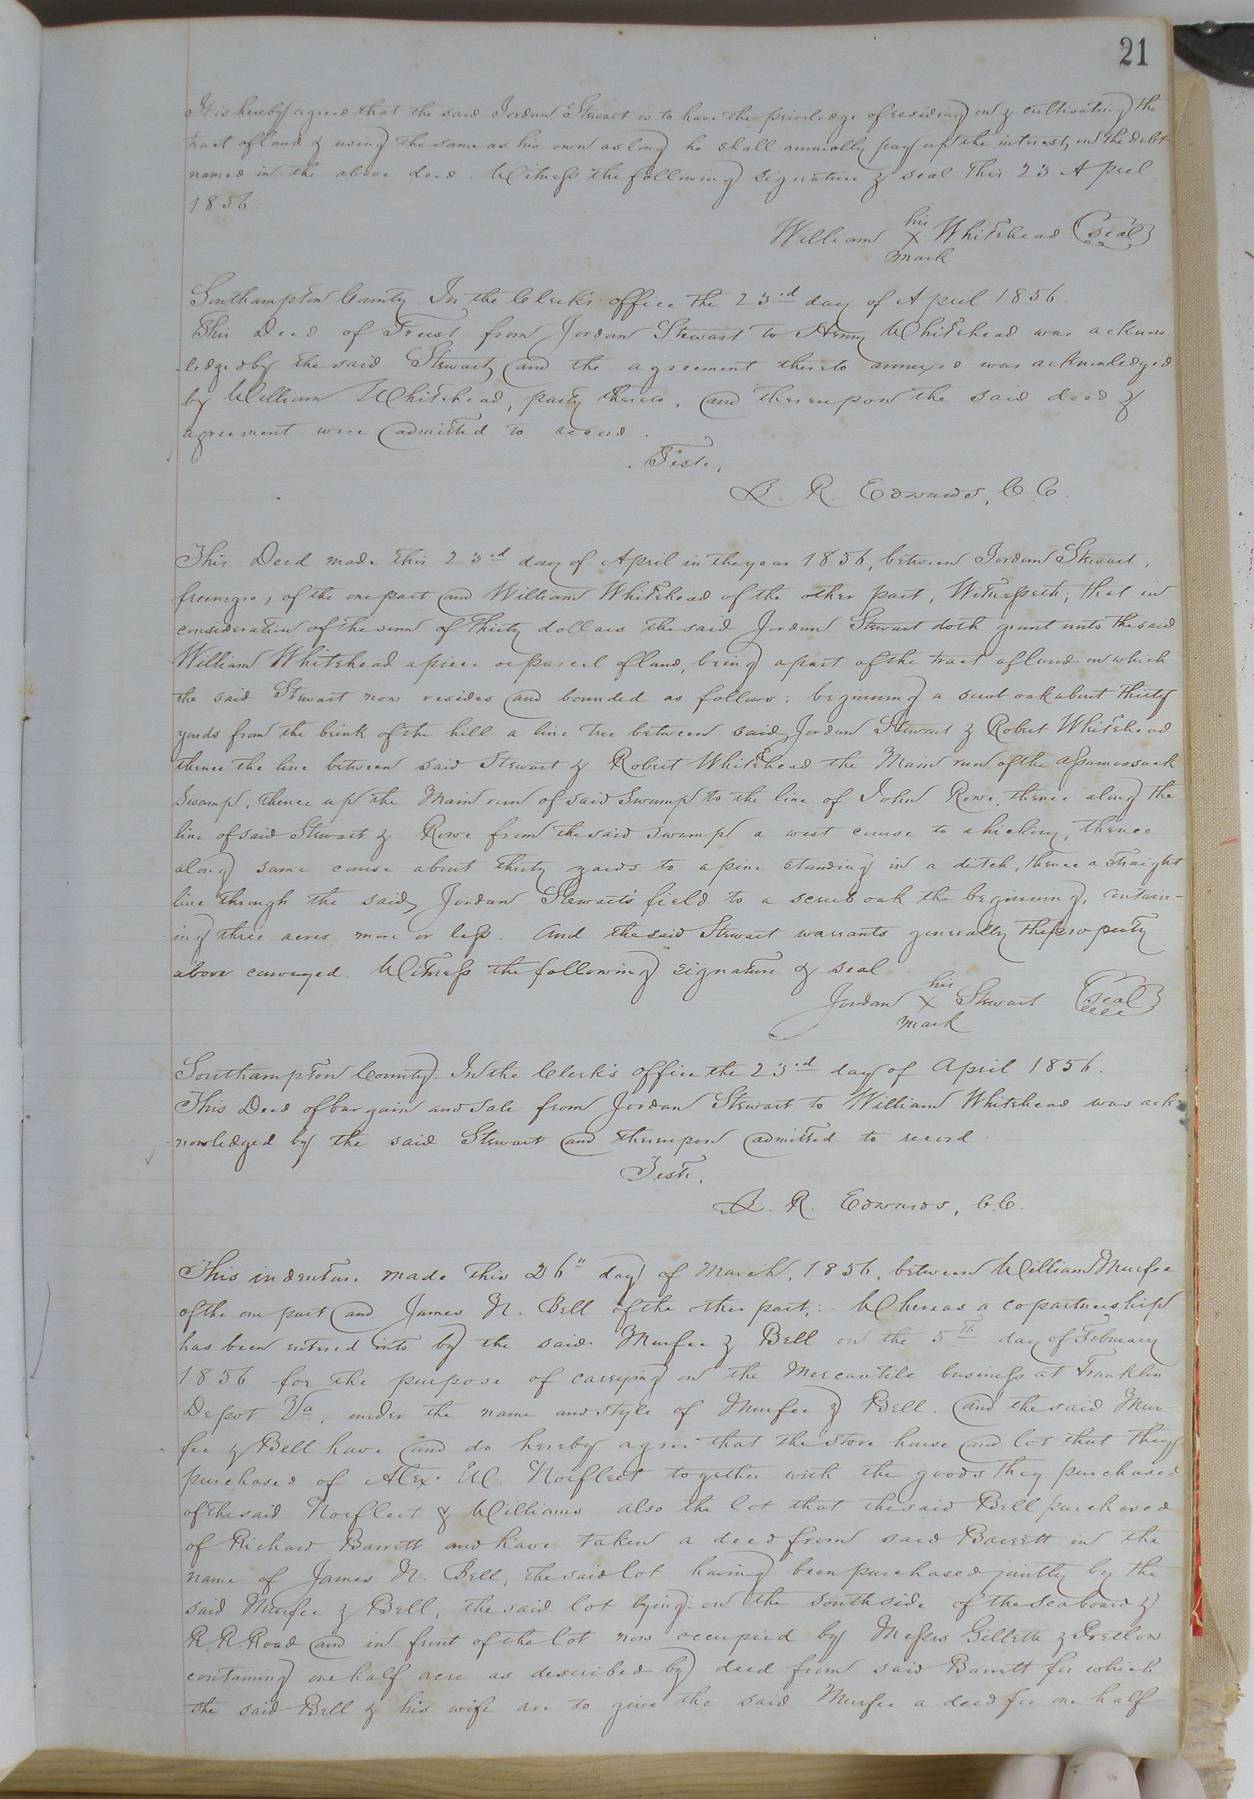 21
It is hereby agreed that the said Jordan Stewart is to have the priviledge of residing on & cultivating the
tract of land & using the same as his own as long he shall annually pay up the interest on the debt
named in the above deed. Witness the following signature & seal this 23 April
1856.
his
William X Whitehead (seal)
mark
Southampton County. In the Clerk's office the 23rd day of April 1856.
This Deed of Trust from Jordan Stewart to Henry Whitehead was acknow-
ledged by the said Stewart, and the agreement thereto annexed was acknowledged
by William Whitehead, party thereto, and thereupon the said deed &
agreement were admitted to record.
Teste,
L. R. Edwards, C C.
This Deed made this 23rd day of April in the year 1856, between Jordan Stewart,
free negro, of the one part and William Whitehead of the other part, Witnesseth; that in
consideration of the sum of thirty dollars the said Jordan Stewart doth grant unto the said
William Whitehead a piece or parcel of land, being a part of the tract of land on which
the said Stewart now resides and bounded as follows: beginning a scrub oak about thirty
yards from the brink of the hill a line tree between said Jordan Stewart & Robert Whitehead
thence the line between said Stewart & Robert Whitehead the Main run of the Assamoosack
Swamp, thence up the Main run of said Swamp to the line of John Rowe, thence along the
line of said Stewart & Rowe from the said swamp a west course to a hickory, thence
along same course about thirty yards to a pine standing in a ditch, thence a straight
line through the said Jordan Stewart's field to a scrub oak the beginning, contain-
ing three acres more or less. And the said Stewart warrants generally the property
above conveyed. Witness the following signature & seal
his
Jordan X Stewart (seal)
mark
Southampton County. In the Clerk's office the 23rd day of April 1856.
This Deed of bargain and sale from Jordan Stewart to William Whitehead was ack-
nowledged by the said Stewart and thereupon admitted to record.
Teste,
L. R. Edwards, C.C.
This indenture made this 26" day of March, 1856, between William Murfee
of the one part and James N. Bell of the other part; Whereas a copartnership
has been entered into by the said Murfee & Bell on the 5th day of February
1856 for the purpose of carrying on the Mercantile business at Franklin
Depot Va, under the name and style of Murfee & Bell. and the said Mur-
fee & Bell have and do hereby agree that the store house and lot that they
purchased of Alex. W. Norfleet together with the goods they purchased
of the said Norfleet & Williams also the lot that the said Bell purchased
of Richard Barrett and have taken a deed from said Barrett in the
name of James N. Bell, the said lot having been purchased jointly by the
said Murfee & Bell, the said lot lying on the south side of the seaboard &
R. R. Road and in front of the lot now occupied by Messrs Gillette & Pretlow
containing one half acre as described by deed from said Barrett for which
the said Bell & his wife are to give the said Murfee a deed for one half